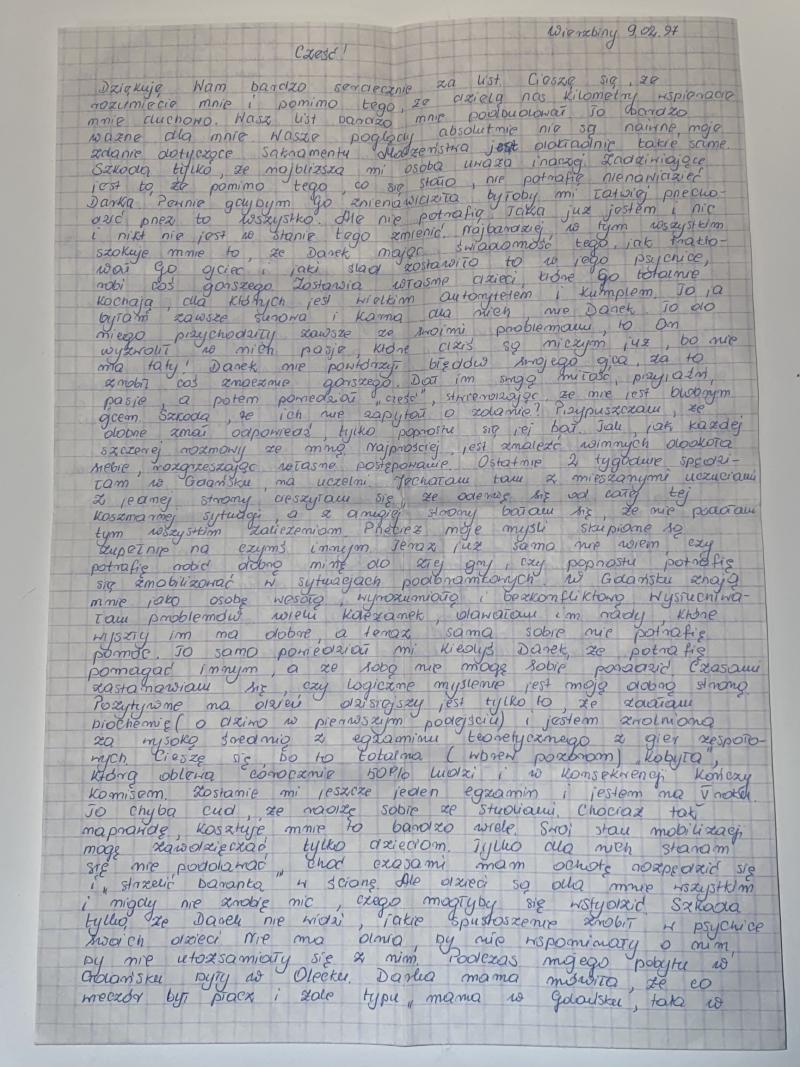 Wierzbiny 9.02.97
Cześć!
Dziękuję Wam bardzo serdecznie za list. Cieszę się, że
rozumiecie mnie i pomimo tego, że dzielą nas kilometry wspieracie
mnie duchowo. Wasz list bardzo mnie podbudował. To bardzo
ważne dla mnie. Wasze poglądy absolutnie nie są naiwne, moje
zdanie dotyczące Sakramentu Małżeństwa jest dokładnie takie same.
Szkoda tylko, że najbliższa mi osoba uważa inaczej. Zadziwiające
jest to, że pomimo tego, co się stało, nie potrafię nienawidzieć
Darka. Pewnie gdybym go znienawidziła byłoby mi łatwiej przecho-
dzić przez to wszystko. Ale nie potrafię. Taka już jestem i nic
i nikt nie jest w stanie tego zmienić. Najbardziej w tym wszystkim
szokuje mnie to, że Darek mając świadomość tego, jak trakto-
wał go ojciec i jaki ślad zostawiło to w jego psychice,
robi coś gorszego. Zostawia własne dzieci, które go totalnie
kochają, dla których jest wielkim autorytetem i kumplem. To ja
byłam zawsze surowa i karna dla nich, nie Darek. To do
niego przychodziły zawsze ze swoimi problemami, to On
wyzwolił w nich pasje, które dziś są niczym już, bo nie
ma taty! Darek nie powtórzył błędów swojego ojca, za to
zrobił coś znacznie gorszego. Dał im swoją miłość, przyjaźń,
pasje, a potem powiedział „cześć", stwierdzając, że nie jest dobrym
ojcem. Szkoda, że ich nie zapytał o zdanie! Przypuszczam, że
dobrze znał odpowiedź, tylko poprostu się jej bał. Tak, jak każdej
szczerej rozmowy ze mną. Najprościej jest znaleźć winnych dookoła
siebie, rozgrzeszając własne postępowanie. Ostatnie 2 tygodnie spędzi-
łam w Gdańsku, na uczelni. Jechałam tam z mieszanymi uczuciami
z jednej strony cieszyłam się, że oderwę się od całej tej
koszmarnej sytuacji, a z drugiej strony bałam się, że nie podołam
tym wszystkim zaliczeniom. Przecież moje myśli skupione są
zupełnie na czymś innym. Teraz już sama nie wiem, czy
potrafię robić dobrą minę do złej gry, czy poprostu potrafię
się zmobilizować w sytuacjach podbramkowych. W Gdańsku znają
mnie jako osobę wesołą, wyrozumiałą i bezkonfliktową. Wysłuchiwa-
łam problemów wielu koleżanek, dawałam im rady, które
wyszły im na dobre, a teraz sama sobie nie potrafię
pomóc. To samo powiedział mi kiedyś Darek, że potrafię
pomagać innym, a ze sobą nie mogę sobie poradzić. Czasami
zastanawiam się, czy logiczne myślenie jest moją dobrą stroną.
Pozytywne na dzień dzisiejszy jest tylko to, że zdałam
biochemię (o dziwo w pierwszym podejściu) i jestem zwolniona
za wysoką średnią z egzaminu teoretycznego z gier zespoło-
wych. Cieszę się, bo to totalna (wbrew pozorom) „kobyła",
którą oblewa corocznie 50% ludzi i w konsekwencji kończy
komisem. Zostanie mi jeszcze jeden egzamin i jestem na V roku.
To chyba cud, że radzę sobie ze studiami. Chociaż tak
naprawdę, kosztuje mnie to bardzo wiele. Swój stan mobilizacji
mogę zawdzięczać tylko dzieciom. Tylko dla nich staram
się nie podołować, choć czasami mam ochotę rozpędzić się
i „strzelić baranka" w ścianę. Ale dzieci są dla mnie wszystkim
i nigdy nie zrobię nic, czego mogłyby się wstydzić. Szkoda
tylko, że Darek nie widzi, jakie spustoszenie zrobił w psychice
swoich dzieci. Nie ma dnia, by nie wspominały o nim,
by nie utożsamiały się z nim. Podczas mojego pobytu w
Gdańsku były w Olecku. Darka mama mówiła, że co
wieczór był płacz i żale typu „mama w Gdańsku, tata w